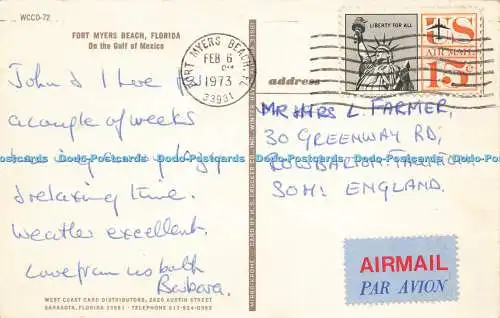 WCCD-72
FORT MYERS BEACH, FLORIDA
On the Gulf of Mexico
John & I here for
a couple of weeks
having a lazy
& relaxing time.
Weather excellent.
Love from us both
Barbara.
WEST COAST CARD DISTRIBUTORS, 2620 AUSTIN STREET
SARASOTA, FLORIDA 33581 - TELEPHONE 813-924-0955
FORT MYERS BEACH, FL
FEB 6
PM
1973
33931
LIBERTY FOR ALL
US
AIR MAIL
15c
address
MR MRS L. FARMER,
30 GREENWAY RD,
TAUNTON
SOM: ENGLAND.
AIRMAIL
PAR AVION
Dodo-Postcards Dodo-Postcards Dodo-Postcards Dodo-Postcards Dodo-Postcards Dodo-Postcards